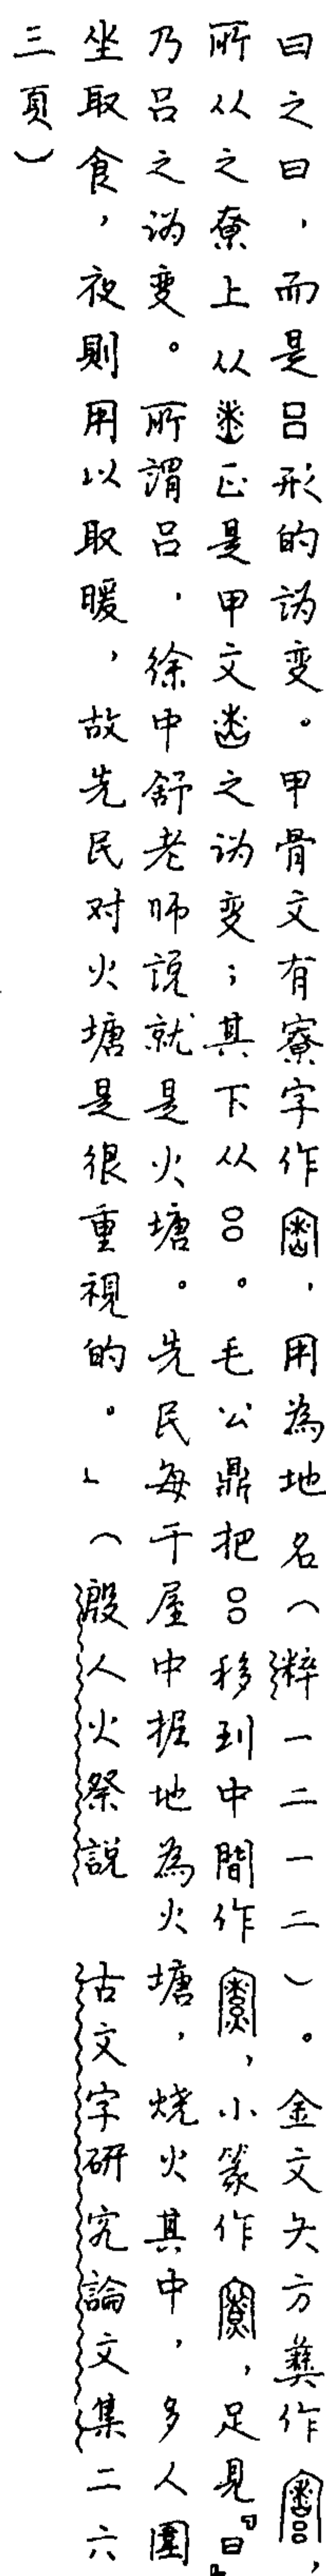 曰之曰，而是吕形的讹变。甲骨文有寮字作，用為地名（粹一二一二）。金文夨方彝作，
所从之尞上从正是甲文之讹变；其下从吕。毛公鼎把吕移到中間作，小篆作，足見『曰』
乃吕之讹变。所謂吕，徐中舒老师説就是火塘。先民每于屋中掘地為火塘，烧火其中，多人圍
坐取食，夜則用以取暖，故先民对火塘是很重視的。」（殷人火祭説 古文字研究論文集二六
三頁）